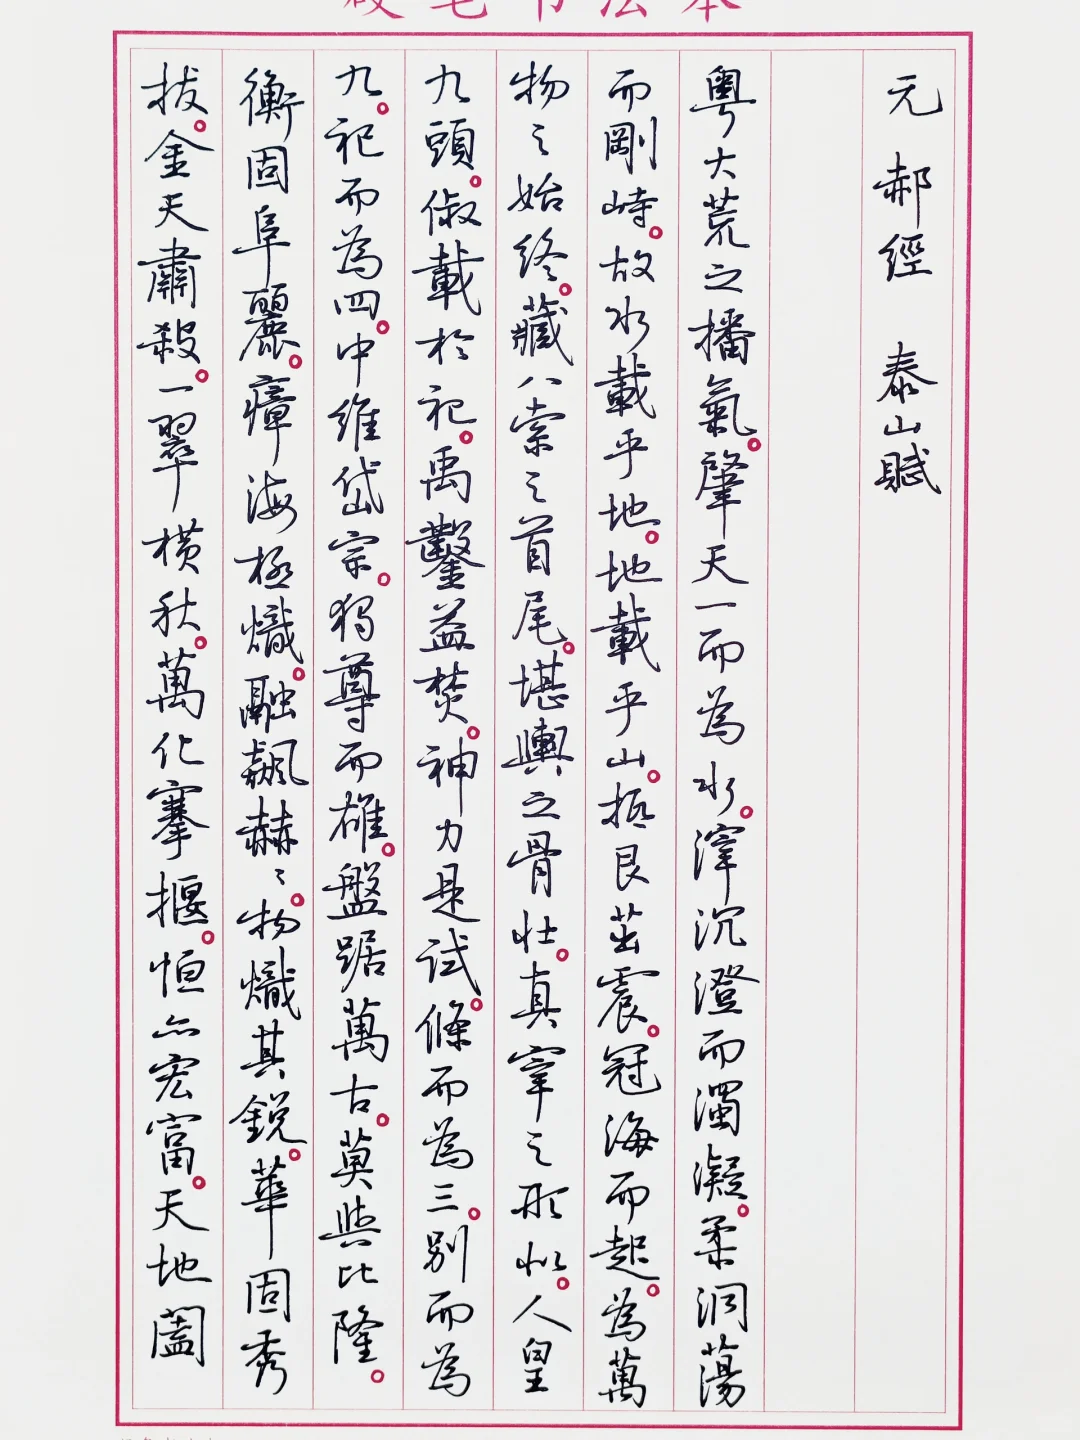 硬笔书法本
元 郝經 泰山賦
粵大荒之播氣。肇天一而為水。滓沉澄而濁凝。柔洞蕩
而剛峙。故水載乎地。地載乎山。抵艮茁震。冠海而起。為萬
物之始終。藏八索之首尾。堪輿之骨壯。真宰之形似。人皇
九頭。俶載於祀。禹鑿益焚。神力是試。條而為三。別而為
九。祀而為四。中維岱宗。獨尊而雄。盤踞萬古。莫與比隆。
衡固阜麗。瘴海極熾。融飆赫々。物熾其銳。華固秀
拔。金天肅殺。一翠橫秋。萬化搴揠。恒亦宏富。天地闔